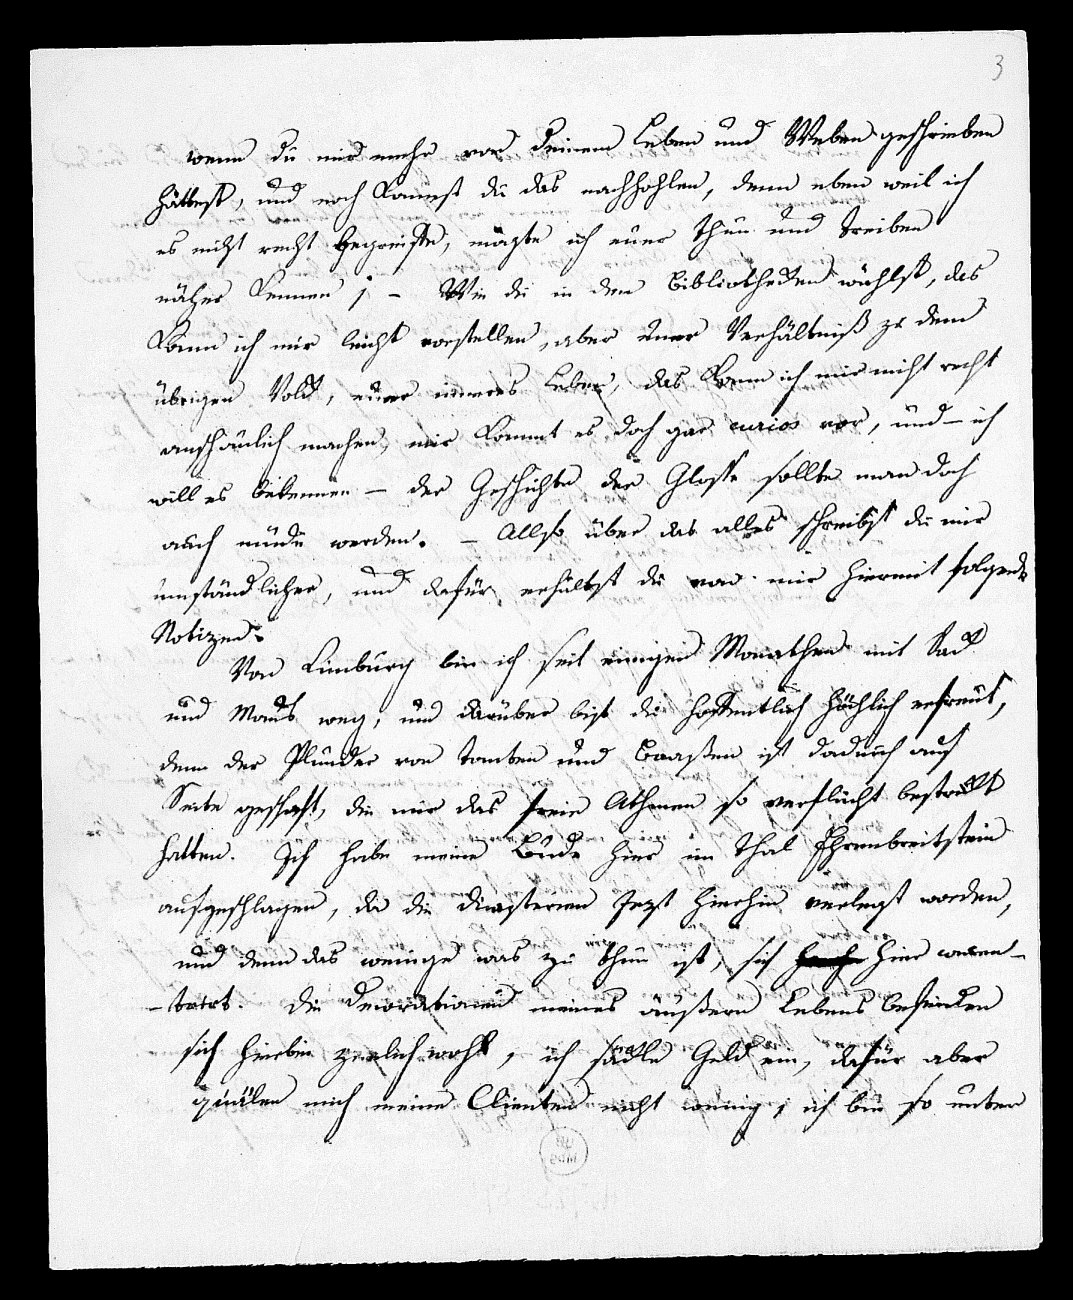 3
wenn du mir mehr von deinem Leben und Weben geschrieben
hättest, und noch kannst du das nachhohlen, denn eben weil ich
es nicht recht begreiffe, mögte ich euer Thun und Treiben
näher kennen; – Wie du in den Bibliotheken wühlst, das
kann ich mir leicht vorstellen, aber euer Verhältniß zu dem
übrigen Volk, euer inneres Leben, das kann ich mir nicht recht
anschaulich machen, mir kommt es doch gar curios vor, und – ich
will es bekennen – der Geschichte der Glosse sollte man doch
auch müde werden. – Allso über das alles schreibst du mir
umständlicher, und dafür erhältst du von mir hiermit folgende
Notizen:
Von Limburg bin ich seit einigen Monathen mit Sack
und Maus weg, und darüber bist du hoffentlich höchlich erfreut,
denn der Plunder von Tanten und Baasen ist dadurch auf
Seite geschaft, die mir das freie Athmen so verflucht bestrickt
hatten. Ich habe meine Bude hier im Thal Ehrenbreitstein
aufgeschlagen, da die Dicasterien jezt hierhin verlegt worden,
und denn das wenige was zu thun ist, sich hier concen-
-trirt. Die Decorationen meines äußern Lebens befinden
sich hierbei ziemlich wohl, ich säckle Geld ein, dafür aber
quälen mich meine Clienten nicht wenig, ich bin so unter